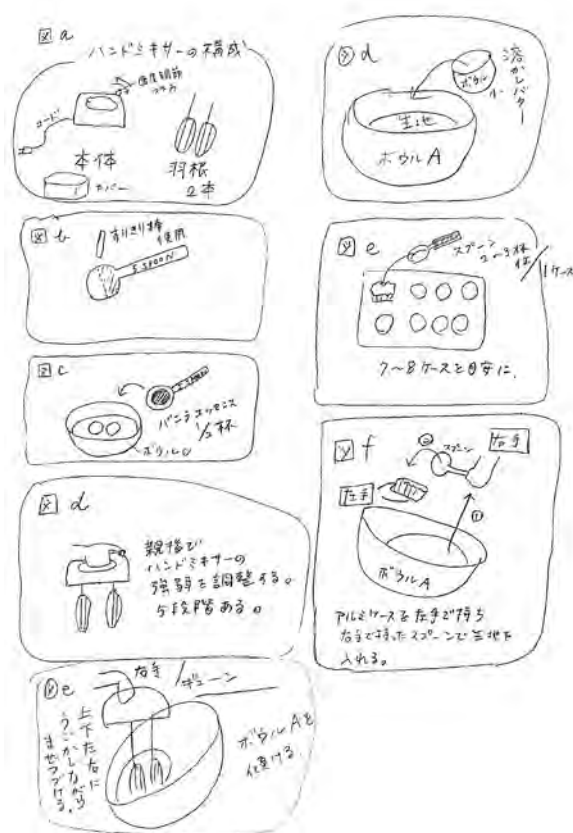 図a
ハンドミキサーの構成
速度調節
つまみ
コード
本体
カバー
羽根
2本
図b
すりきり棒
使用
S SPOON
図c
バニラエッセンス
1/2杯
ボウル
図d
親指で
ハンドミキサーの
強弱を調整する。
5段階ある。
図e
右手
ギューン
上下左右に
うごかしながら
まぜつづける。
ボウルAを
傾ける
図d
溶かしバター
ボウル
小
生地
ボウルA
図e
スプーン
2〜3杯
1ケース
7〜8ケースを目安に。
図f
②
スプーン
右手
左手
①
ボウルA
アルミケースを左手で持ち
右手で持ったスプーンで生地を
入れる。